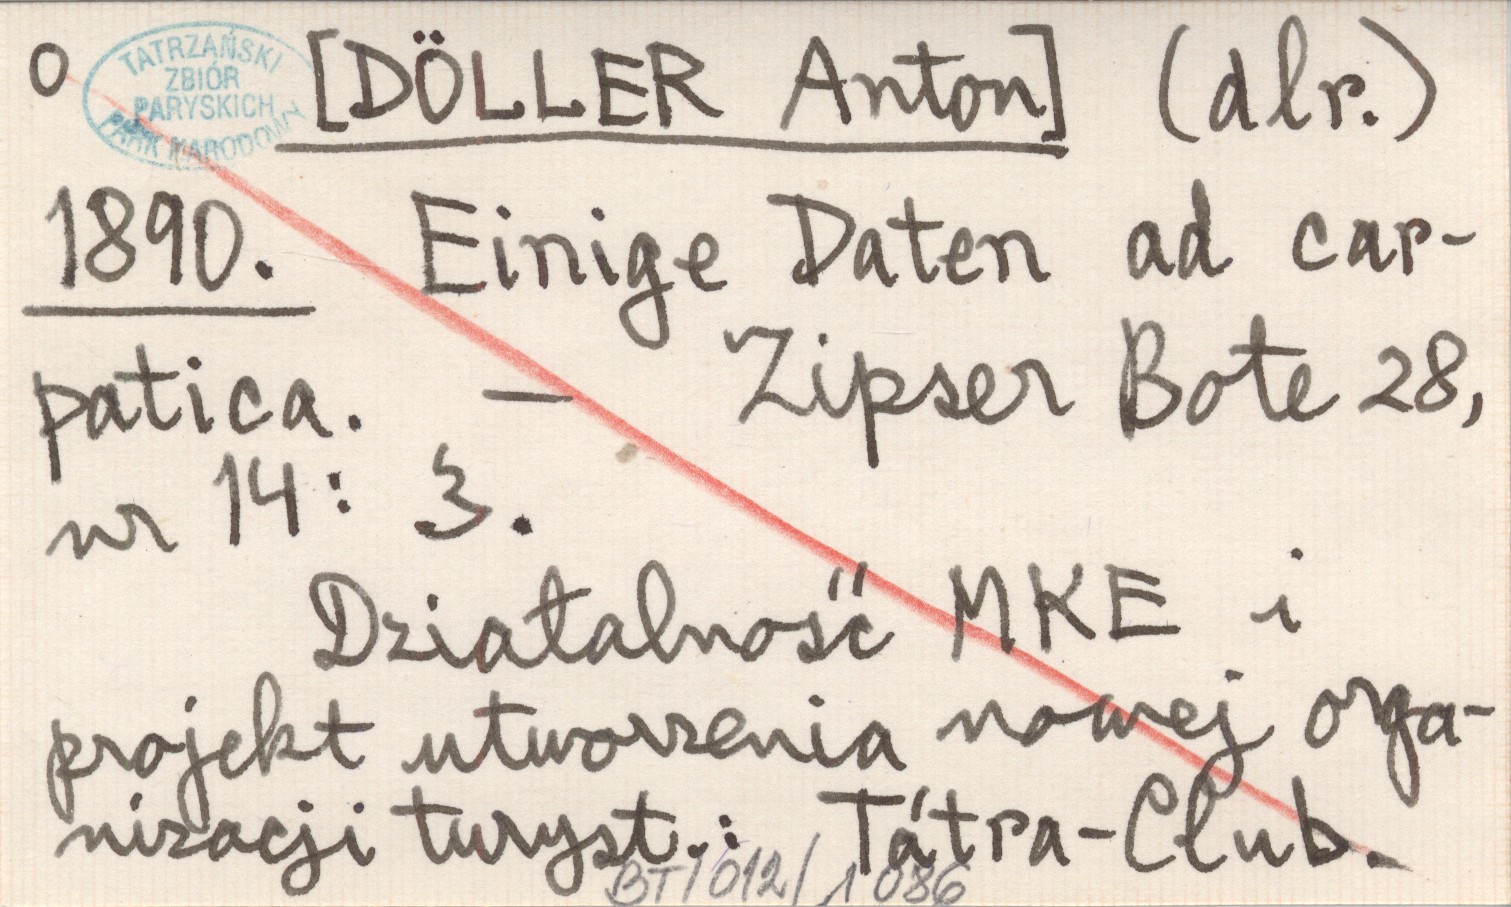 o [DÖLLER Anton] (dlr.)
TATRZAŃSKI
ZBIÓR
PARYSKICH
PARK NARODOWY
1890. Einige Daten ad car-
patica. — Zipser Bote 28,
nr 14: 3.
Działalność MKE i
projekt utworzenia nowej orga-
nizacji turyst.: Tátra-Club.
BT/012/1086